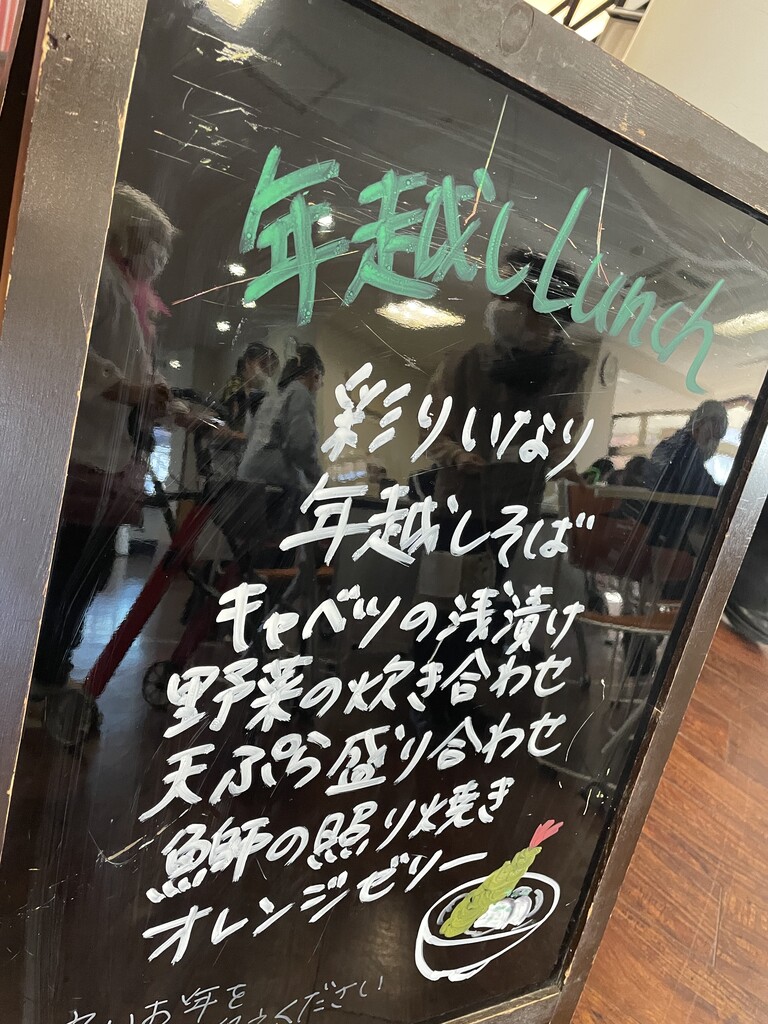 年越しLunch
彩りいなり
年越しそば
キャベツの浅漬け
野菜の炊き合わせ
天ぷら盛り合わせ
鰤の照り焼き
オレンジゼリー
いお年を
ください